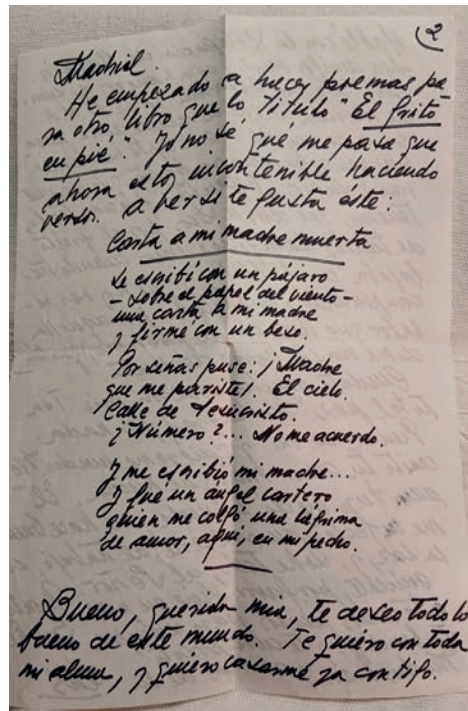 (2
Madrid.
He empezado a hacer poemas pa-
ra otro libro que lo titulo "El grito
en pié". Yo no sé qué me pasa que
ahora estoy incontenible haciendo
versos. a ver si te gusta éste:
Carta a mi madre muerta
Le escribí con un pájaro
- sobre el papel del viento -
una carta a mi madre
y firmé con un beso.
Por señas puse: ¡Madre
que me pariste! El cielo.
Calle de Jesucristo.
¿Número?... No me acuerdo.
Y me escribió mi madre...
Y fué un ángel cartero
quien me colgó una lágrima
de amor, aquí, en mi pecho.
Bueno, querida mia, te deseo todo lo
bueno de este mundo. Te quiero con toda
mi alma, y quiero casarme ya contigo.